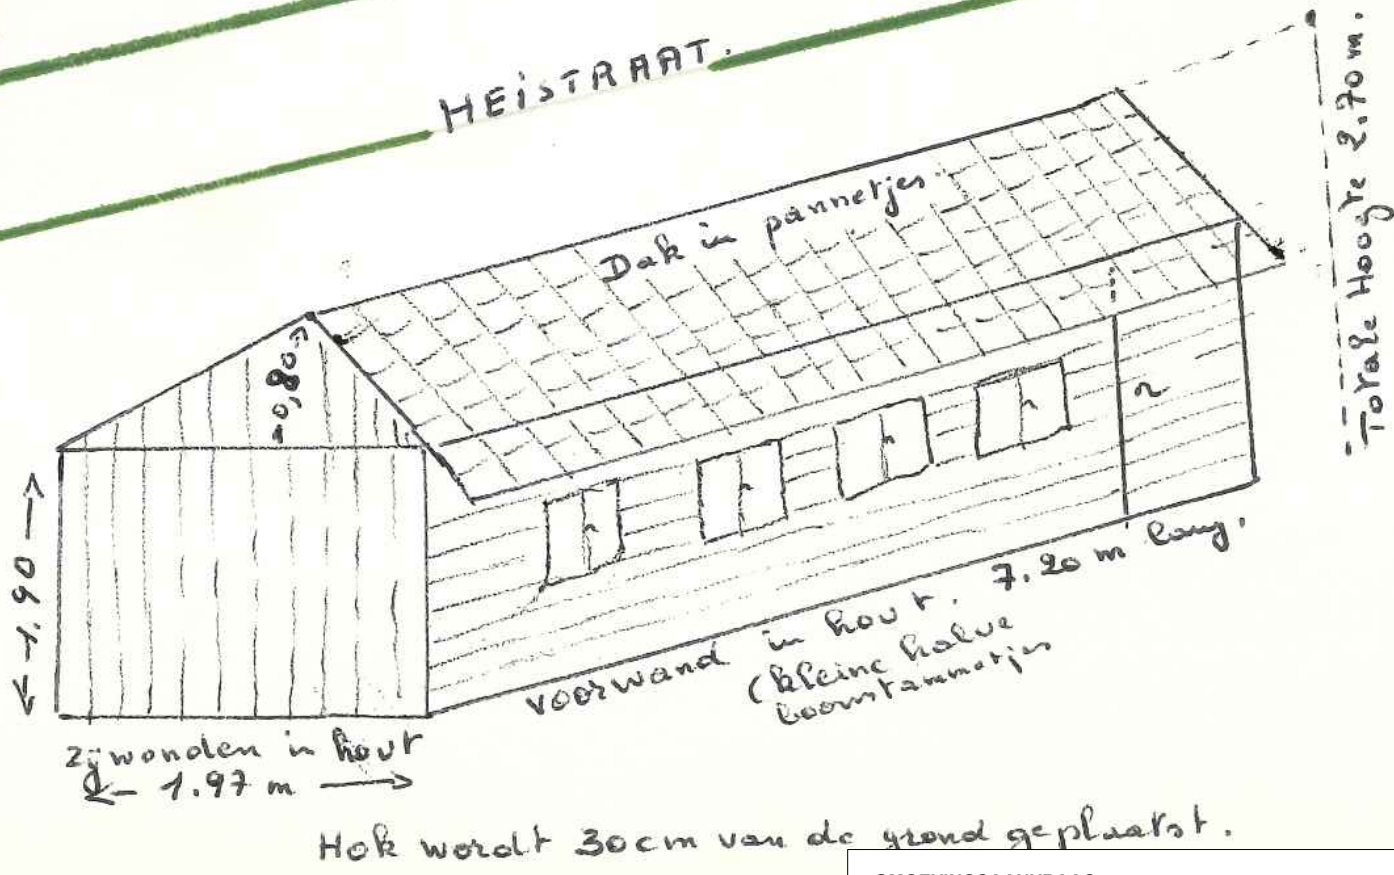 HEiSTRAAT.
Dak in pannetjes.
Totale Hoogte 2.70 m.
0,80
1.90
7.20 m lang.
voorwand in hout.
(kleine halve
boomstammetjes
zijwanden in hout
1.97 m
Hok wordt 30cm van de grond geplaatst.